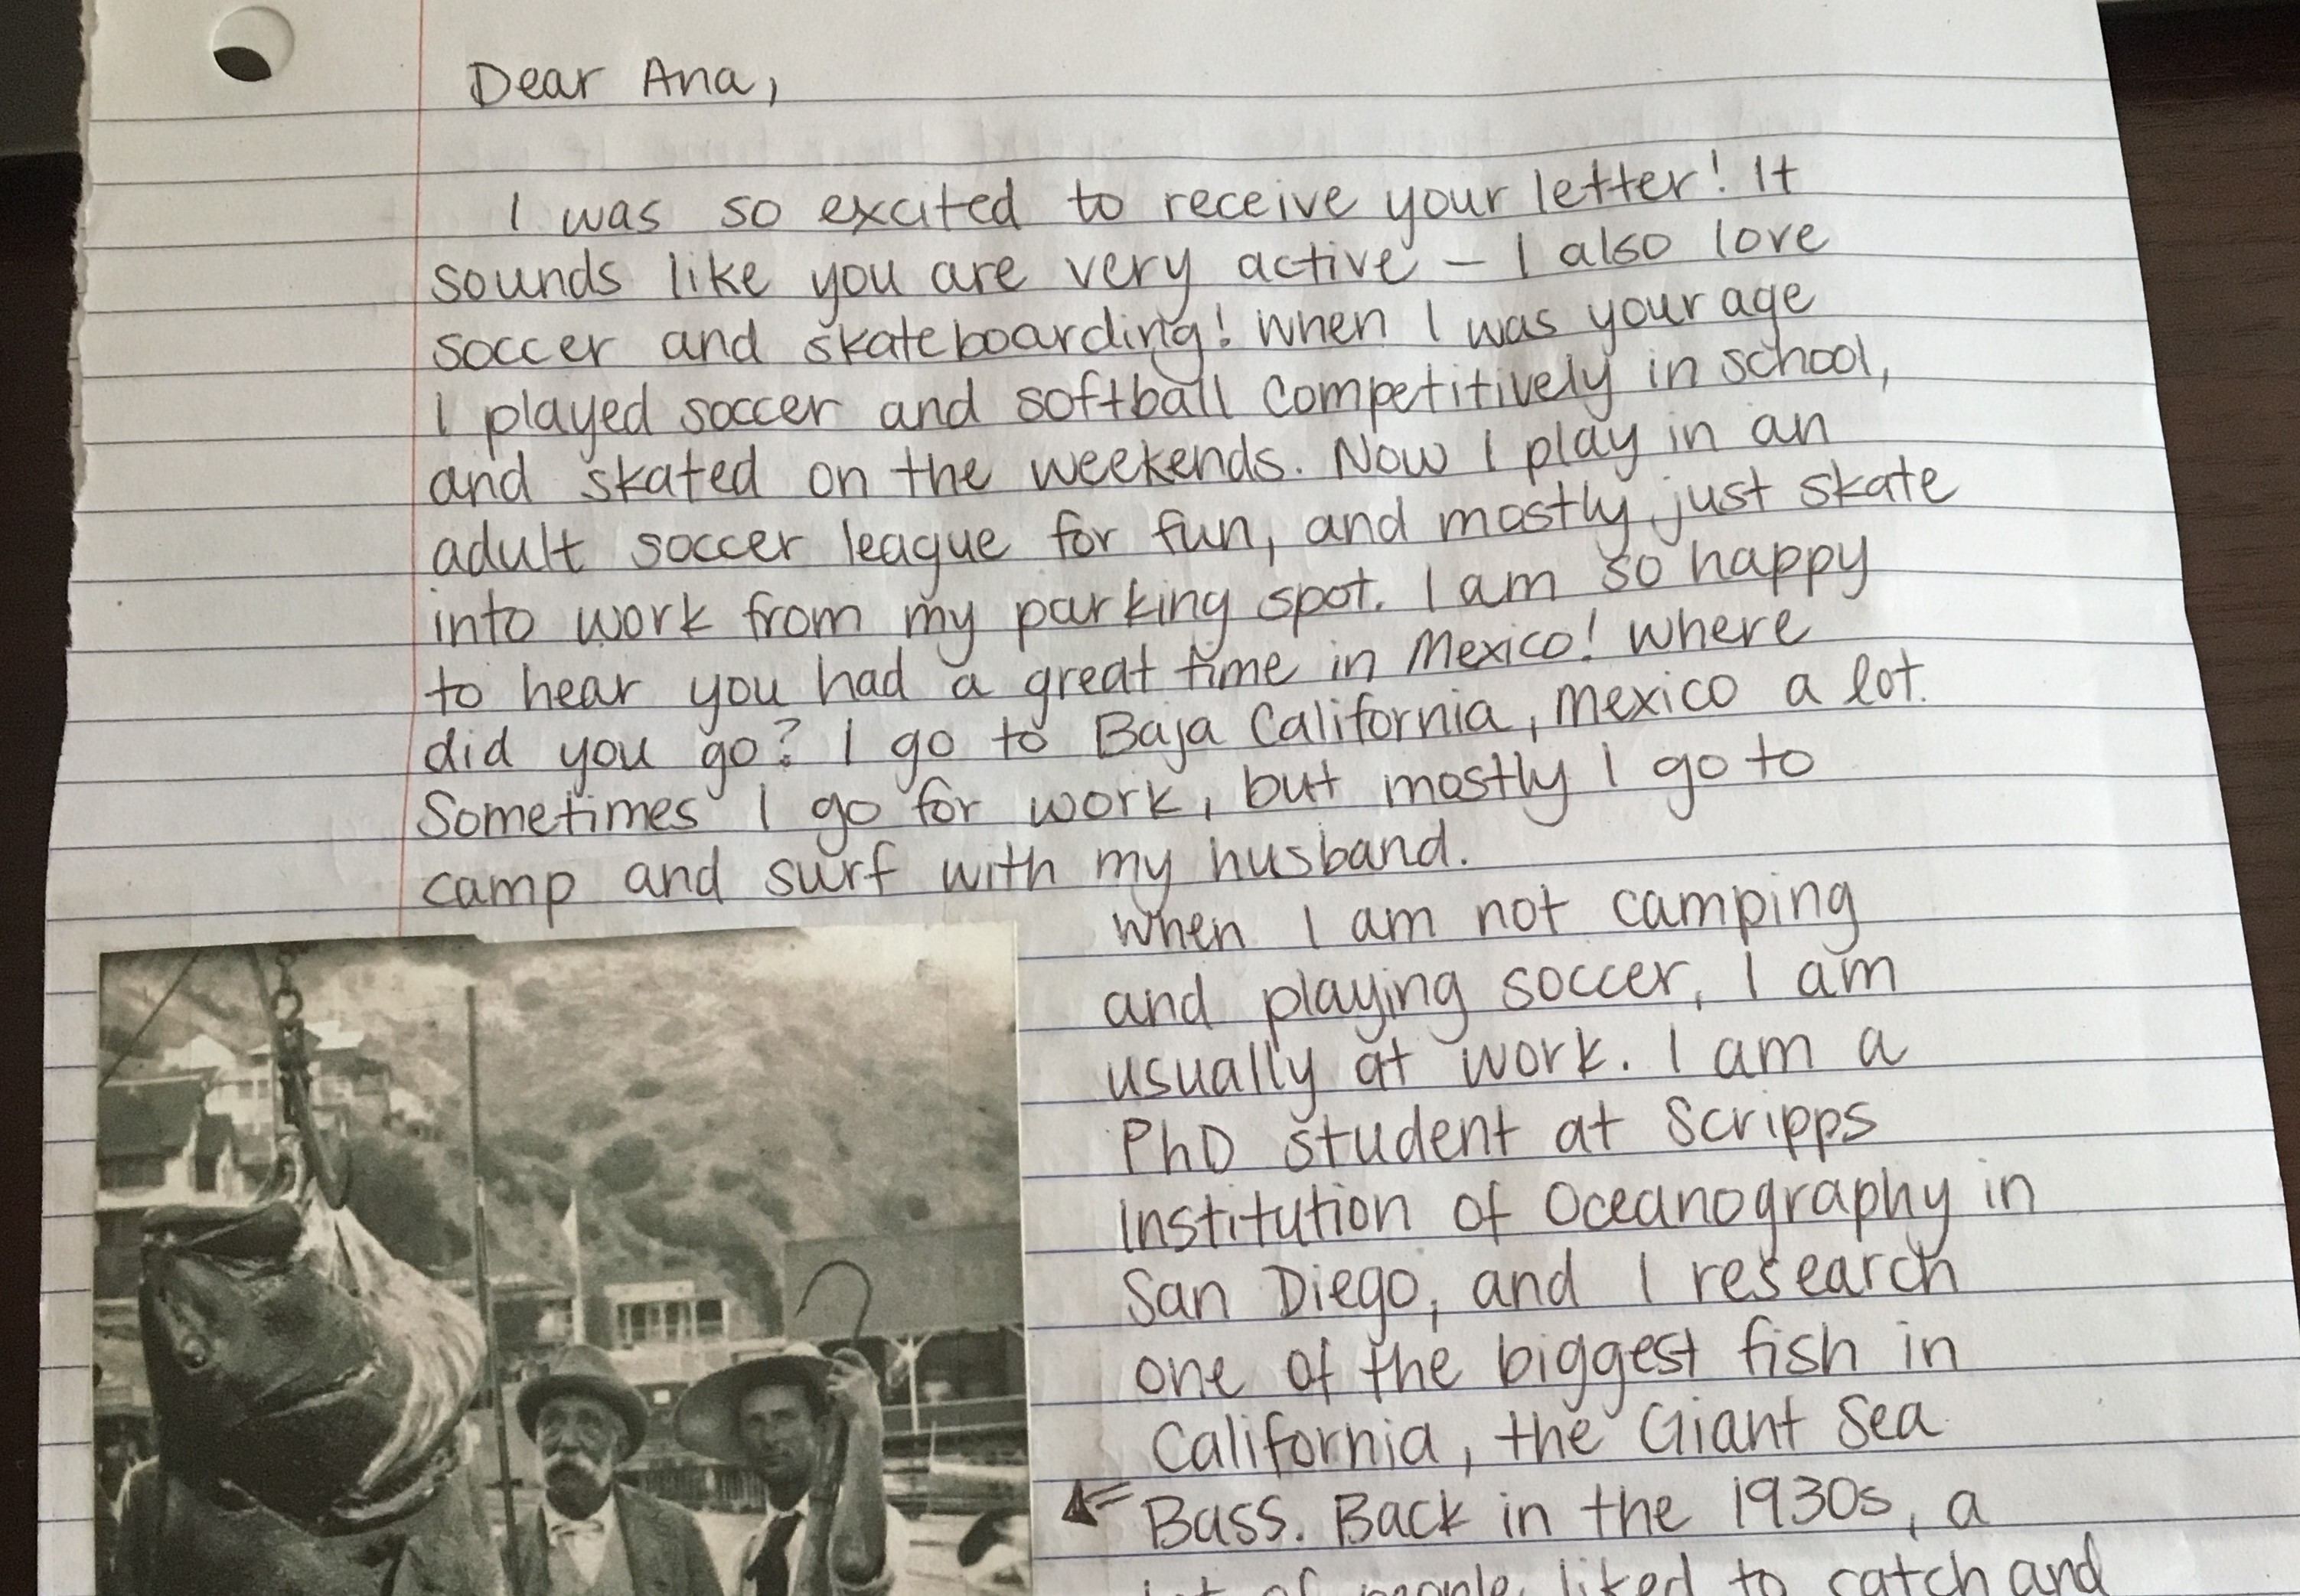 Dear Ana,
I was so excited to receive your letter! It
sounds like you are very active – I also love
soccer and skateboarding! When I was your age
I played soccer and softball competitively in school,
and skated on the weekends. Now I play in an
adult soccer league for fun, and mostly just skate
into work from my parking spot. I am so happy
to hear you had a great time in Mexico! Where
did you go? I go to Baja California, Mexico a lot.
Sometimes I go for work, but mostly I go to
camp and surf with my husband.
When I am not camping
and playing soccer, I am
usually at work. I am a
PhD student at Scripps
Institution of Oceanography in
San Diego, and I research
one of the biggest fish in
California, the Giant Sea
Bass. Back in the 1930s, a
lot of people liked to catch and